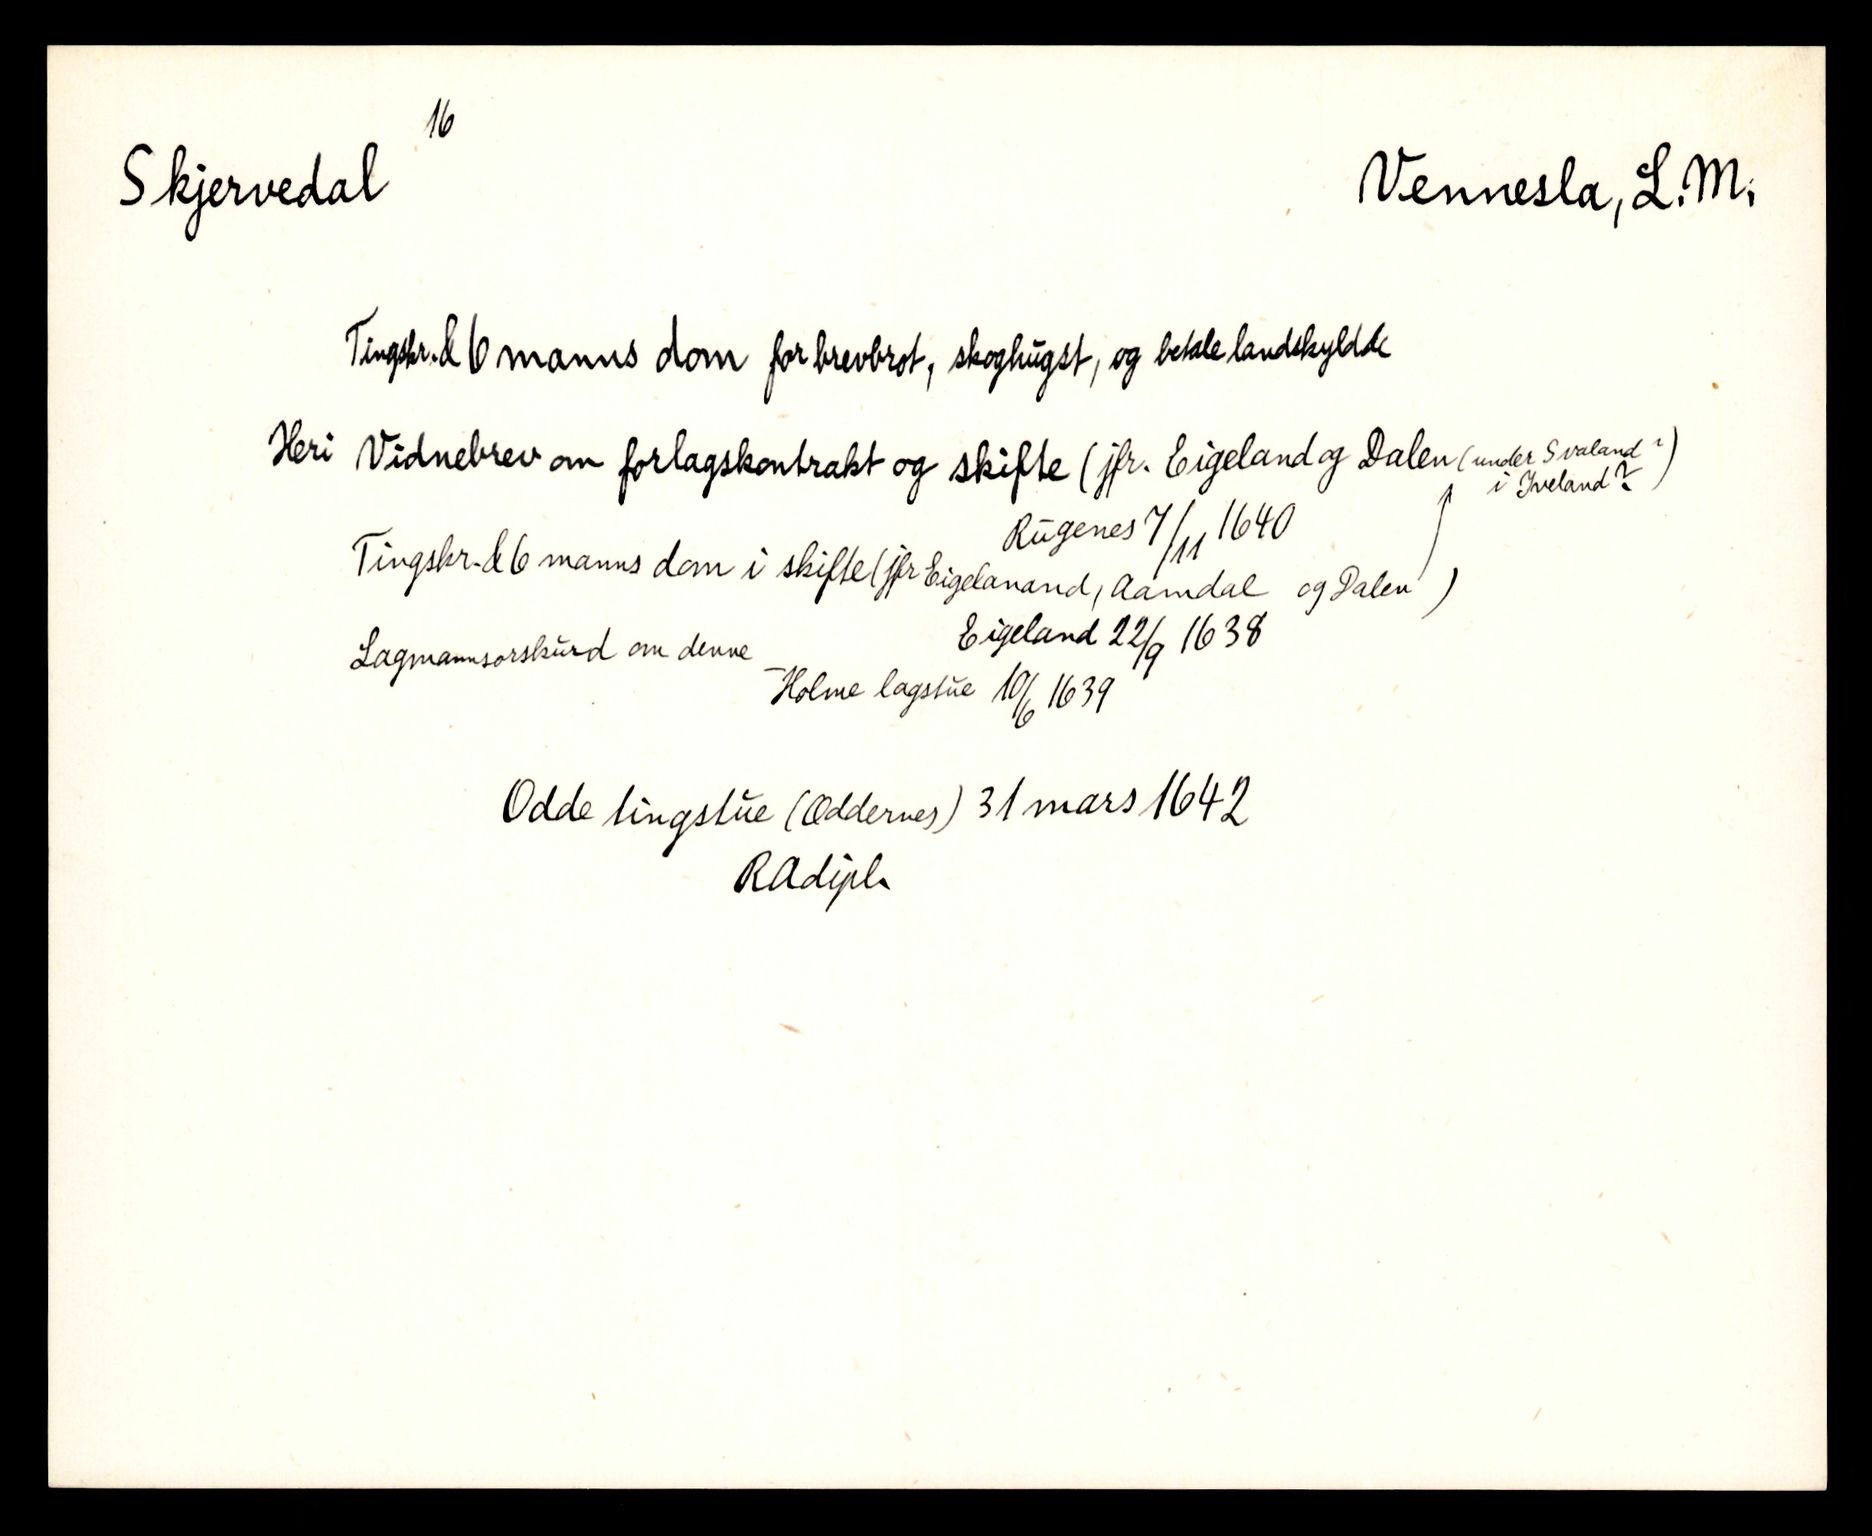 16
Skjervedal Vennesla, L.M.
Tingskr. & 6 manns dom for brevbrot, skoghugst, og betale landskyldde
Heri Vidnebrev om forlagskontrakt og skifte (jfr. Eigeland og Dalen (under Svaland?)
i Iveland?
Rugenes 7/11 1640
Tingskr. & 6 manns dom i skifte (jfr Eigelanand, Aamdal og Dalen)
Eigeland 22/9 1638
Lagmannsorskurd om denne
Holme lagstue 10/6 1639
Odde tingstue (Oddernes) 31 mars 1642
RAdipl.